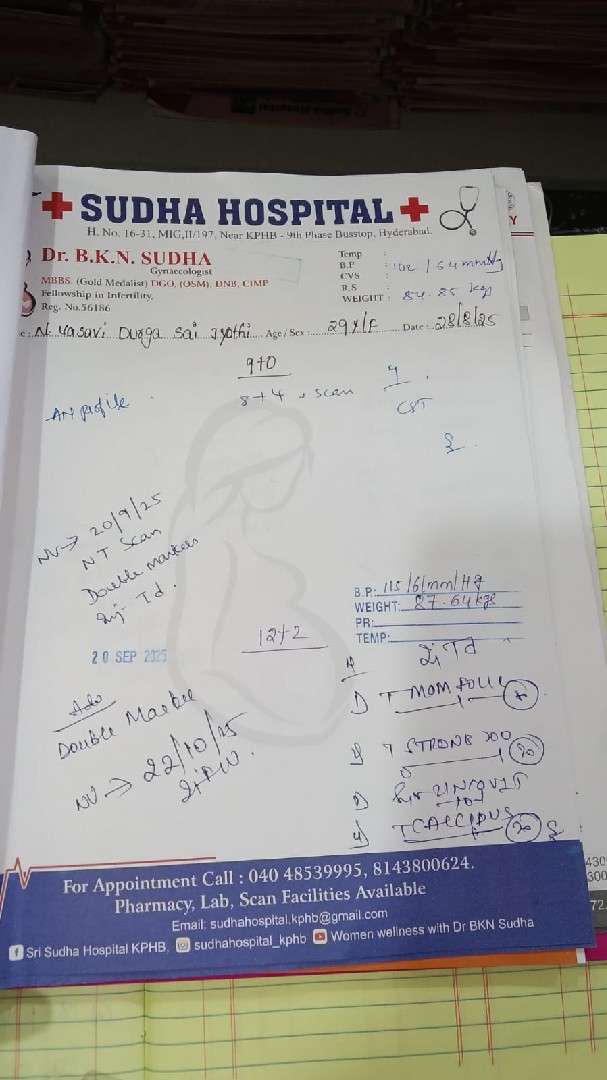 SUDHA HOSPITAL
H. No. 16-31, MIG,II/197, Near KPHB - 9th Phase Busstop, Hyderabad.
Dr. B.K.N. SUDHA
Gynaecologist
MBBS. (Gold Medalist) DGO, (OSM), DNB, CIMP
Fellowship in Infertility,
Reg. No.56186
Temp :
B.P : 102 / 64 mmHg
CVS :
R.S :
WEIGHT : 84.85 kg
Yasavi Durga Sai Jyothi Age / Sex : 29Y/F Date : 28/8/25
9+0
8+4 scan
AN profile
CST
NV→ 20/9/25
NT Scan
Double marker
Inj. Td.
B.P.: 115/61mm/Hg
WEIGHT: 87.64kgs
PR:
TEMP:
20 SEP 2025
12+2
Adv
Double Marker
NV→ 22/10/25
1) T MOM FOLL
T STRONG
4) T CALCIPLUS 30
For Appointment Call : 040 48539995, 8143800624.
Pharmacy, Lab, Scan Facilities Available
Email: sudhahospital.kphb@gmail.com
Sri Sudha Hospital KPHB, sudhahospital_kphb Women wellness with Dr BKN Sudha